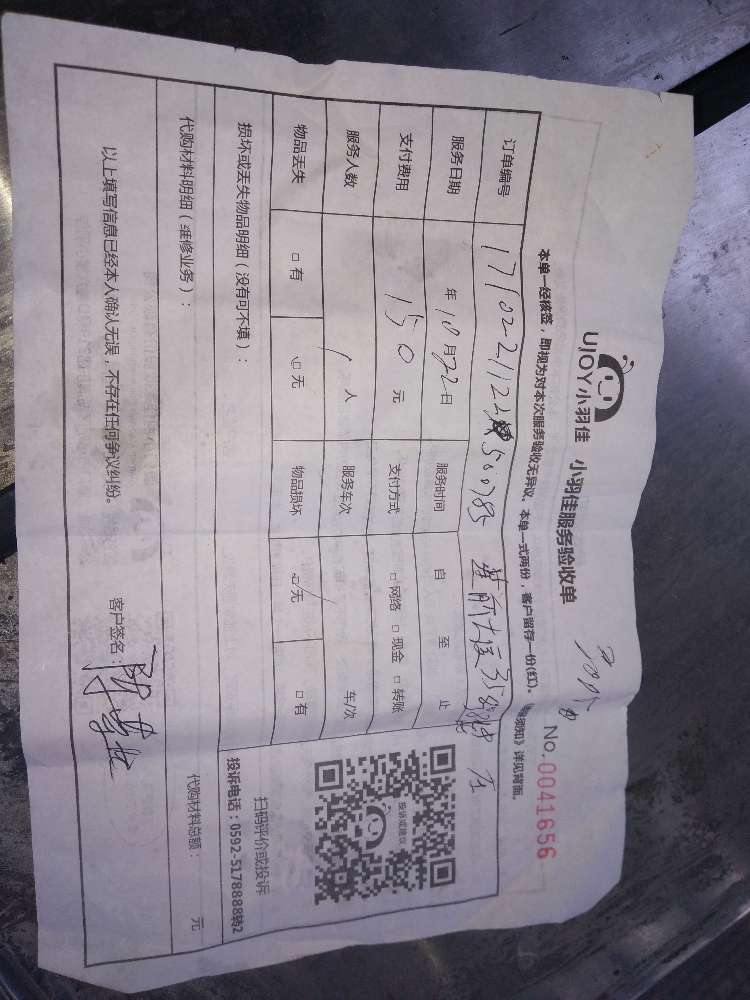 UJOY小羽佳 小羽佳服务验收单 No.0041656
本单一经核签，即视为对本次服务验收无异议，本单一式两份，客户留存一份(红)。 须知》详见背面。
订单编号
服务日期 年10月22日 服务时间 自 至 止
支付费用 150元 支付方式 □网络 □现金 □转账
服务人数 1人 服务车次 车/次
物品丢失 □有 □无 物品损坏 □无 □有
扫码评价或投诉
投诉电话：0592-5178888转2
投诉或建议
损坏或丢失物品明细（没有可不填）：
代购材料明细（维修业务）： 代购材料总额： 元
以上填写信息已经本人确认无误，不存在任何争议纠纷。 客户签名：